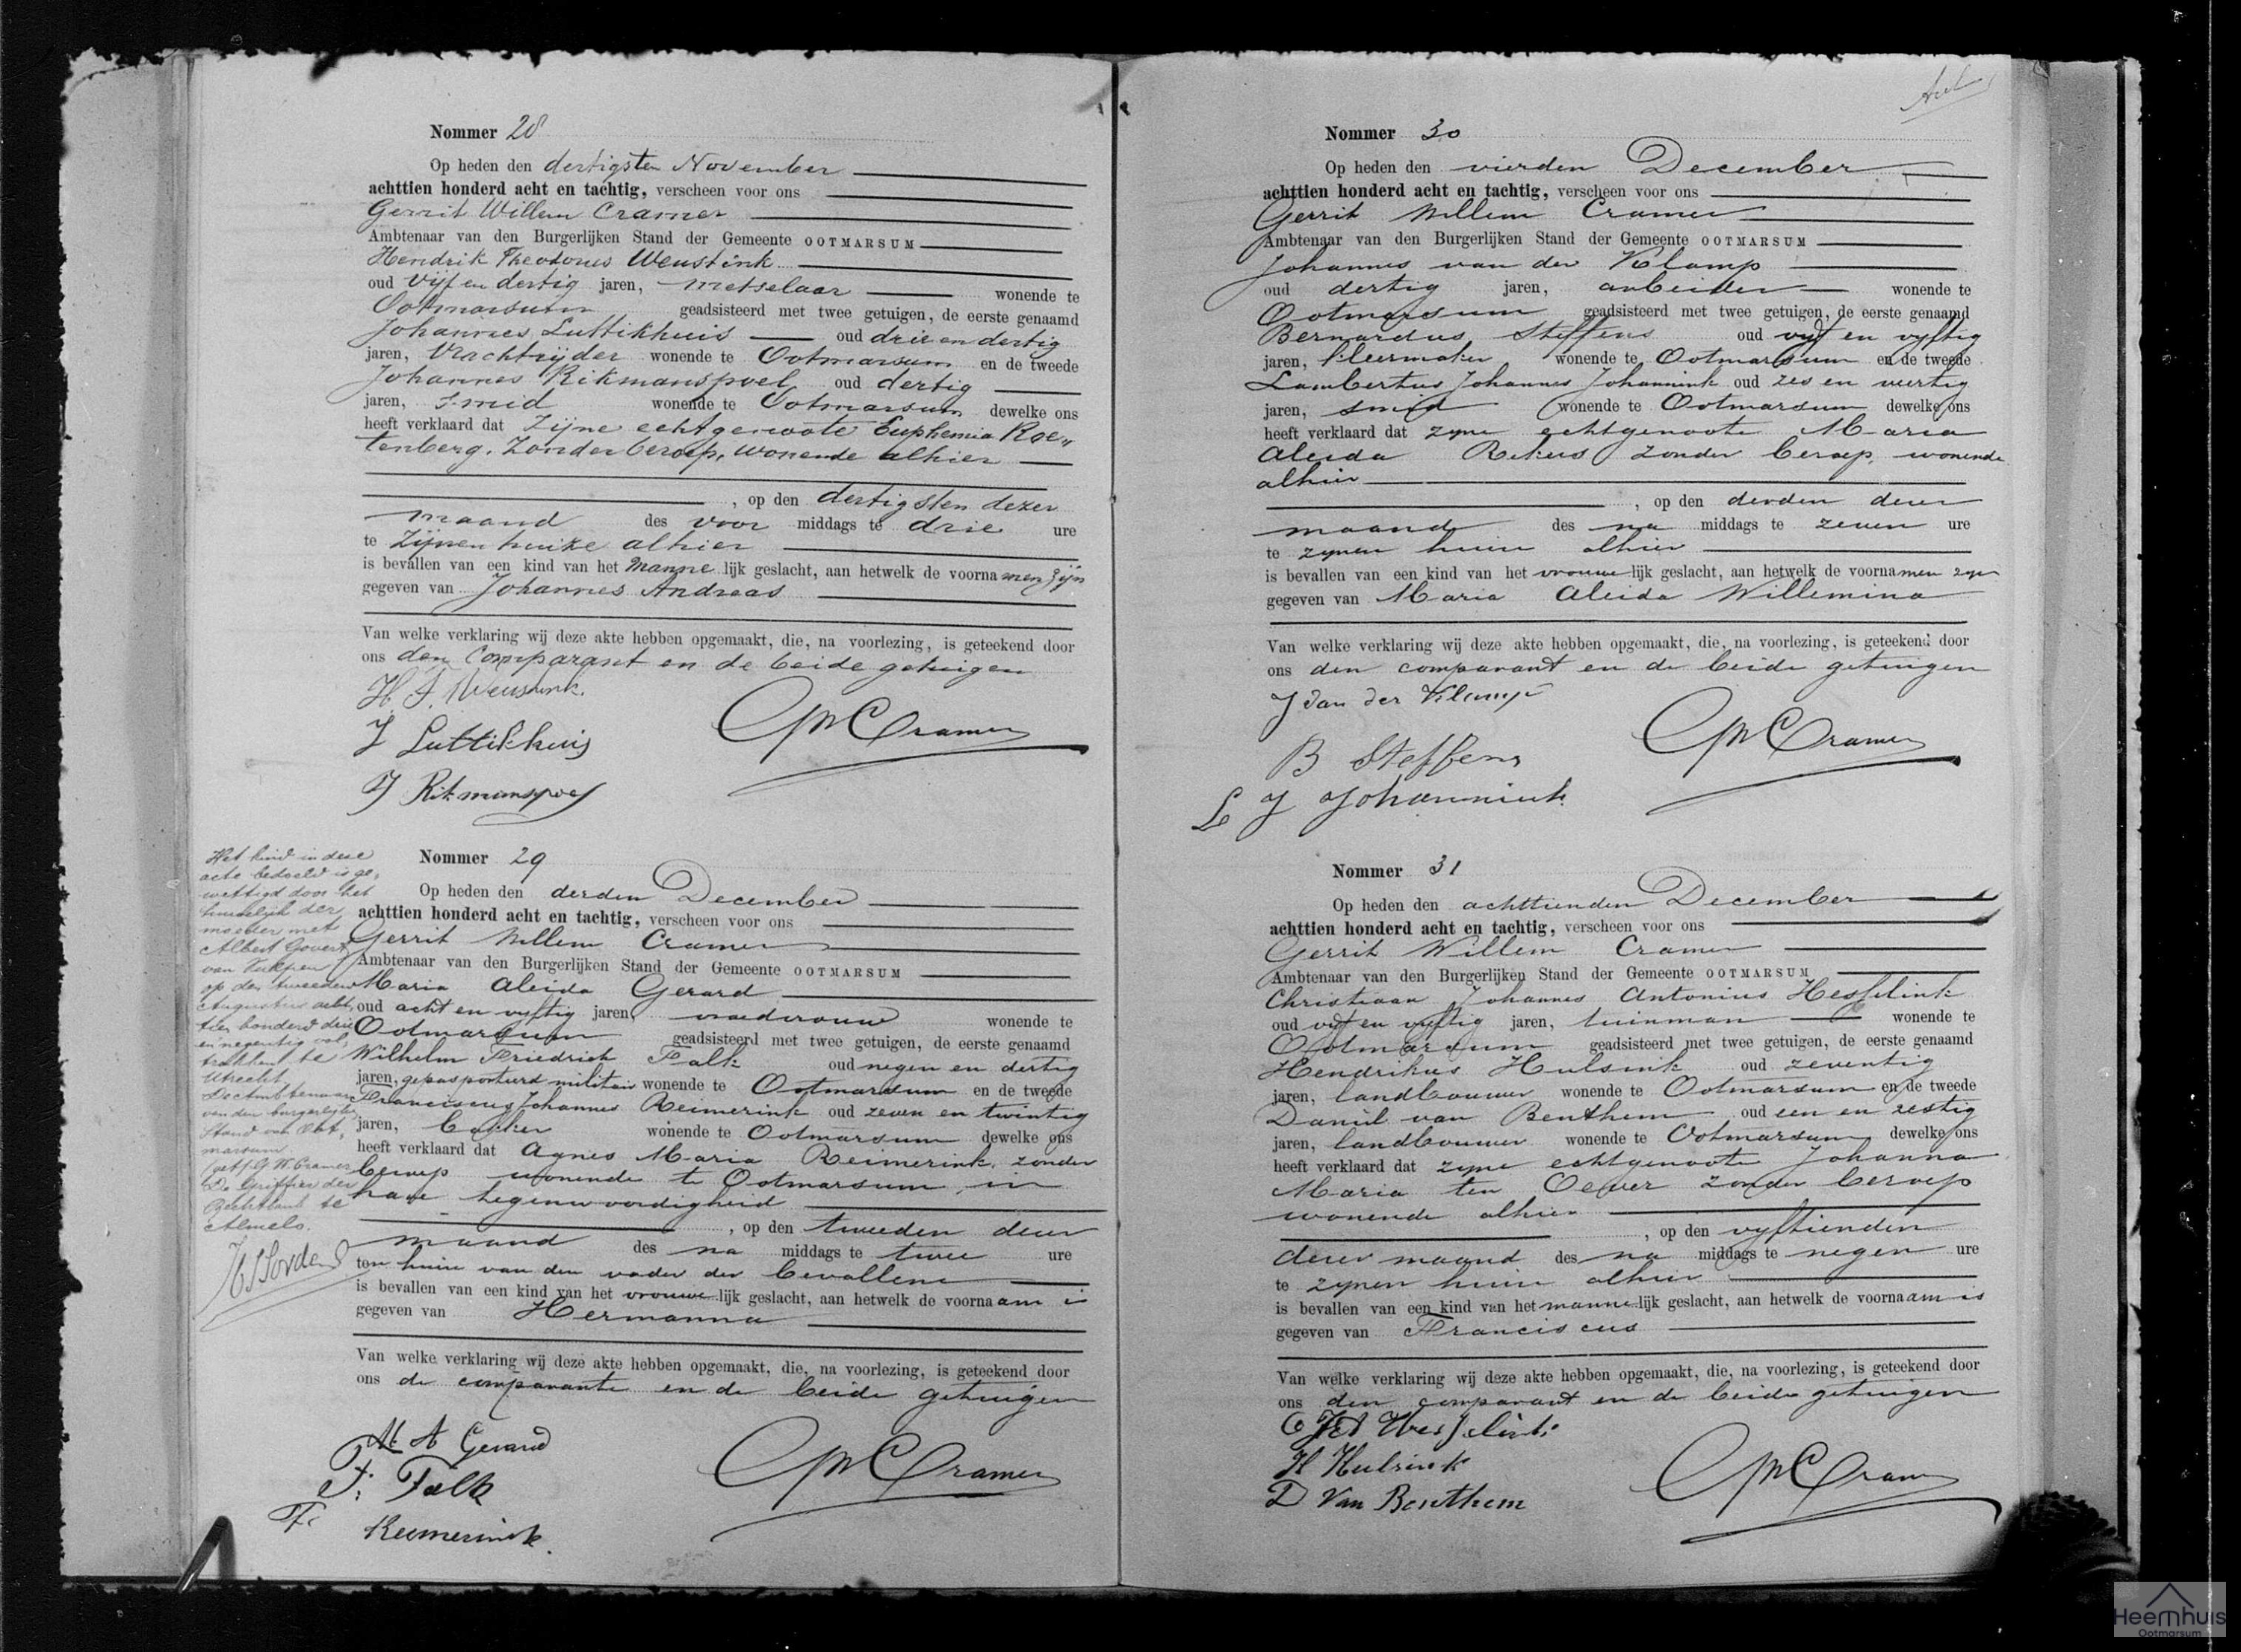 Nommer 28
Op heden den dertigsten November
achttien honderd acht en tachtig, verscheen voor ons
Gerrit Willem Cramer
Ambtenaar van den Burgerlijken Stand der Gemeente OOTMARSUM
Hendrik Theodorus Weustink
oud Vijf en dertig jaren, metselaar wonende te
Ootmarsum geadsisteerd met twee getuigen, de eerste genaamd
Johannes Luttikhuis oud drie en dertig
jaren, Vrachtrijder wonende te Ootmarsum en de tweede
Johannes Rikmanspoel oud dertig
jaren, smid wonende te Ootmarsum dewelke ons
heeft verklaard dat Zijne echtgenoote Euphemia Roe„
tenberg. Zonder beroep, wonende alhier
, op den dertigsten dezer
maand des voor middags te drie ure
te Zijnen huize alhier
is bevallen van een kind van het Manne lijk geslacht, aan hetwelk de voorna men zijn
gegeven van Johannes Andreas
Van welke verklaring wij deze akte hebben opgemaakt, die, na voorlezing, is geteekend door
ons den Comparant en de beide getuigen
H. T. Weustink.
J Luttikhuis
J Rikmanspoel
GWCramer
Het kind in deze
acte bedoeld is ge„
wettigd door het
huwelijk der
moeder met
Albert Govert
van
op den tweeden
Augustus acht„
tien honderd drie
en negentig vol„
trokken te
Utrecht
De Ambtenaar
van den burgerlijken
Stand van Oot„
marsum
(get) G W Cramer
De Griffier der
Rechtbank te
Almelo.
Nommer 29
Op heden den derden December
achttien honderd acht en tachtig, verscheen voor ons
Gerrit Willem Cramer
Ambtenaar van den Burgerlijken Stand der Gemeente OOTMARSUM
Maria Aleida Gerard
oud acht en vyftig jaren, vroedvrouw wonende te
Ootmarsum geadsisteerd met twee getuigen, de eerste genaamd
Wilhelm Friedrich Falk oud negen en dertig
jaren, gepasporteerd militair wonende te Ootmarsum en de tweede
Franciscus Johannes Reimerink oud zeven en twintig
jaren, bakker wonende te Ootmarsum dewelke ons
heeft verklaard dat Agnes Maria Reimerink, zonder
beroep wonende te Ootmarsum, in
hare tegenwoordigheid
, op den tweeden dezer
maand des na middags te twee ure
ten huize van den vader der bevallene
is bevallen van een kind van het vrouwe lijk geslacht, aan hetwelk de voorna am is
gegeven van Hermanna
Van welke verklaring wij deze akte hebben opgemaakt, die, na voorlezing, is geteekend door
ons de comparante en de beide getuigen
M A Gerard
F. Falk
F. Reimerink.
GWCramer
Nommer 30
Op heden den vierden December
achttien honderd acht en tachtig, verscheen voor ons
Gerrit Willem Cramer
Ambtenaar van den Burgerlijken Stand der Gemeente OOTMARSUM
Johannes van der Klamp
oud dertig jaren, arbeider wonende te
Ootmarsum geadsisteerd met twee getuigen, de eerste genaamd
Bernardus Steffens oud vyf en vyftig
jaren, kleermaker wonende te Ootmarsum en de tweede
Lambertus Johannes Johannink oud zes en veertig
jaren, smid wonende te Ootmarsum dewelke ons
heeft verklaard dat zyne echtgenoote Maria
Aleida Rekers zonder beroep, wonende
alhier
, op den derden dezer
maand des na middags te zeven ure
te zynen huize alhier
is bevallen van een kind van het vrouwe lijk geslacht, aan hetwelk de voorna men zyn
gegeven van Maria Aleida Willemina
Van welke verklaring wij deze akte hebben opgemaakt, die, na voorlezing, is geteekend door
ons den comparant en de beide getuigen
J van der Klamp
B Steffens
L J Johannink
GWCramer
Nommer 31
Op heden den achttienden December
achttien honderd acht en tachtig, verscheen voor ons
Gerrit Willem Cramer
Ambtenaar van den Burgerlijken Stand der Gemeente OOTMARSUM
Christiaan Johannes Antonius Hesselink
oud vyf en vyftig jaren, tuinman wonende te
Ootmarsum geadsisteerd met twee getuigen, de eerste genaamd
Hendrikus Hulsink oud zeventig
jaren, landbouwer wonende te Ootmarsum en de tweede
Daniel van Benthem oud een en zestig
jaren, landbouwer wonende te Ootmarsum dewelke ons
heeft verklaard dat zyne echtgenoote Johanna
Maria ten Oever zonder beroep
wonende alhier
, op den vyftienden
dezer maand des na middags te negen ure
te zynen huize alhier
is bevallen van een kind van het manne lijk geslacht, aan hetwelk de voorna am is
gegeven van Franciscus
Van welke verklaring wij deze akte hebben opgemaakt, die, na voorlezing, is geteekend door
ons den comparant en de beide getuigen
C J A Hesselink
H Hulsink
D Van Benthem
GWCramer
Heemhuis
Ootmarsum